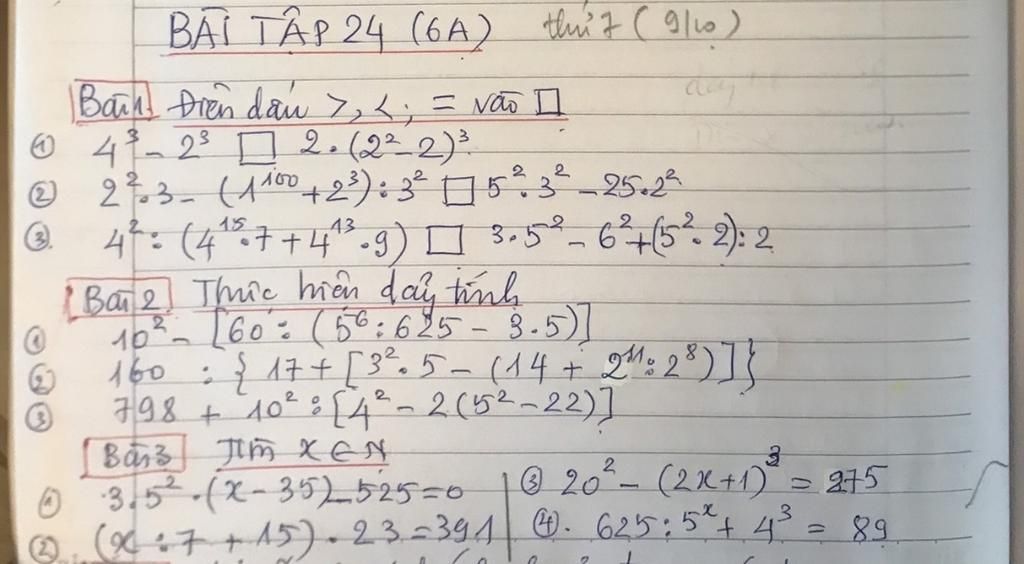 BÀI TẬP 24 (6A) thứ 7 (9/10)
Bài 1 Điền dấu >, <; = vào □
① 4³ - 2³ □ 2.(2² - 2)³
② 2².3 - (1¹⁰⁰ + 2³) : 3² □ 5².3² - 25.2²
③. 4² : (4¹⁵.7 + 4¹³.9) □ 3.5² - 6² + (5².2) : 2
Bài 2 Thực hiện dãy tính
① 10² - [60 : (5⁶ : 625 - 3.5)]
② 160 : { 17 + [3².5 - (14 + 2¹¹ : 2⁸)]}
③ 798 + 10² : [4² - 2(5² - 22)]
Bài 3 Tìm x ∈ N
① 3.5².(x - 35) - 525 = 0
② (x : 7 + 15).23 = 391
③ 20² - (2x + 1)³ = 275
④. 625 : 5ˣ + 4³ = 89